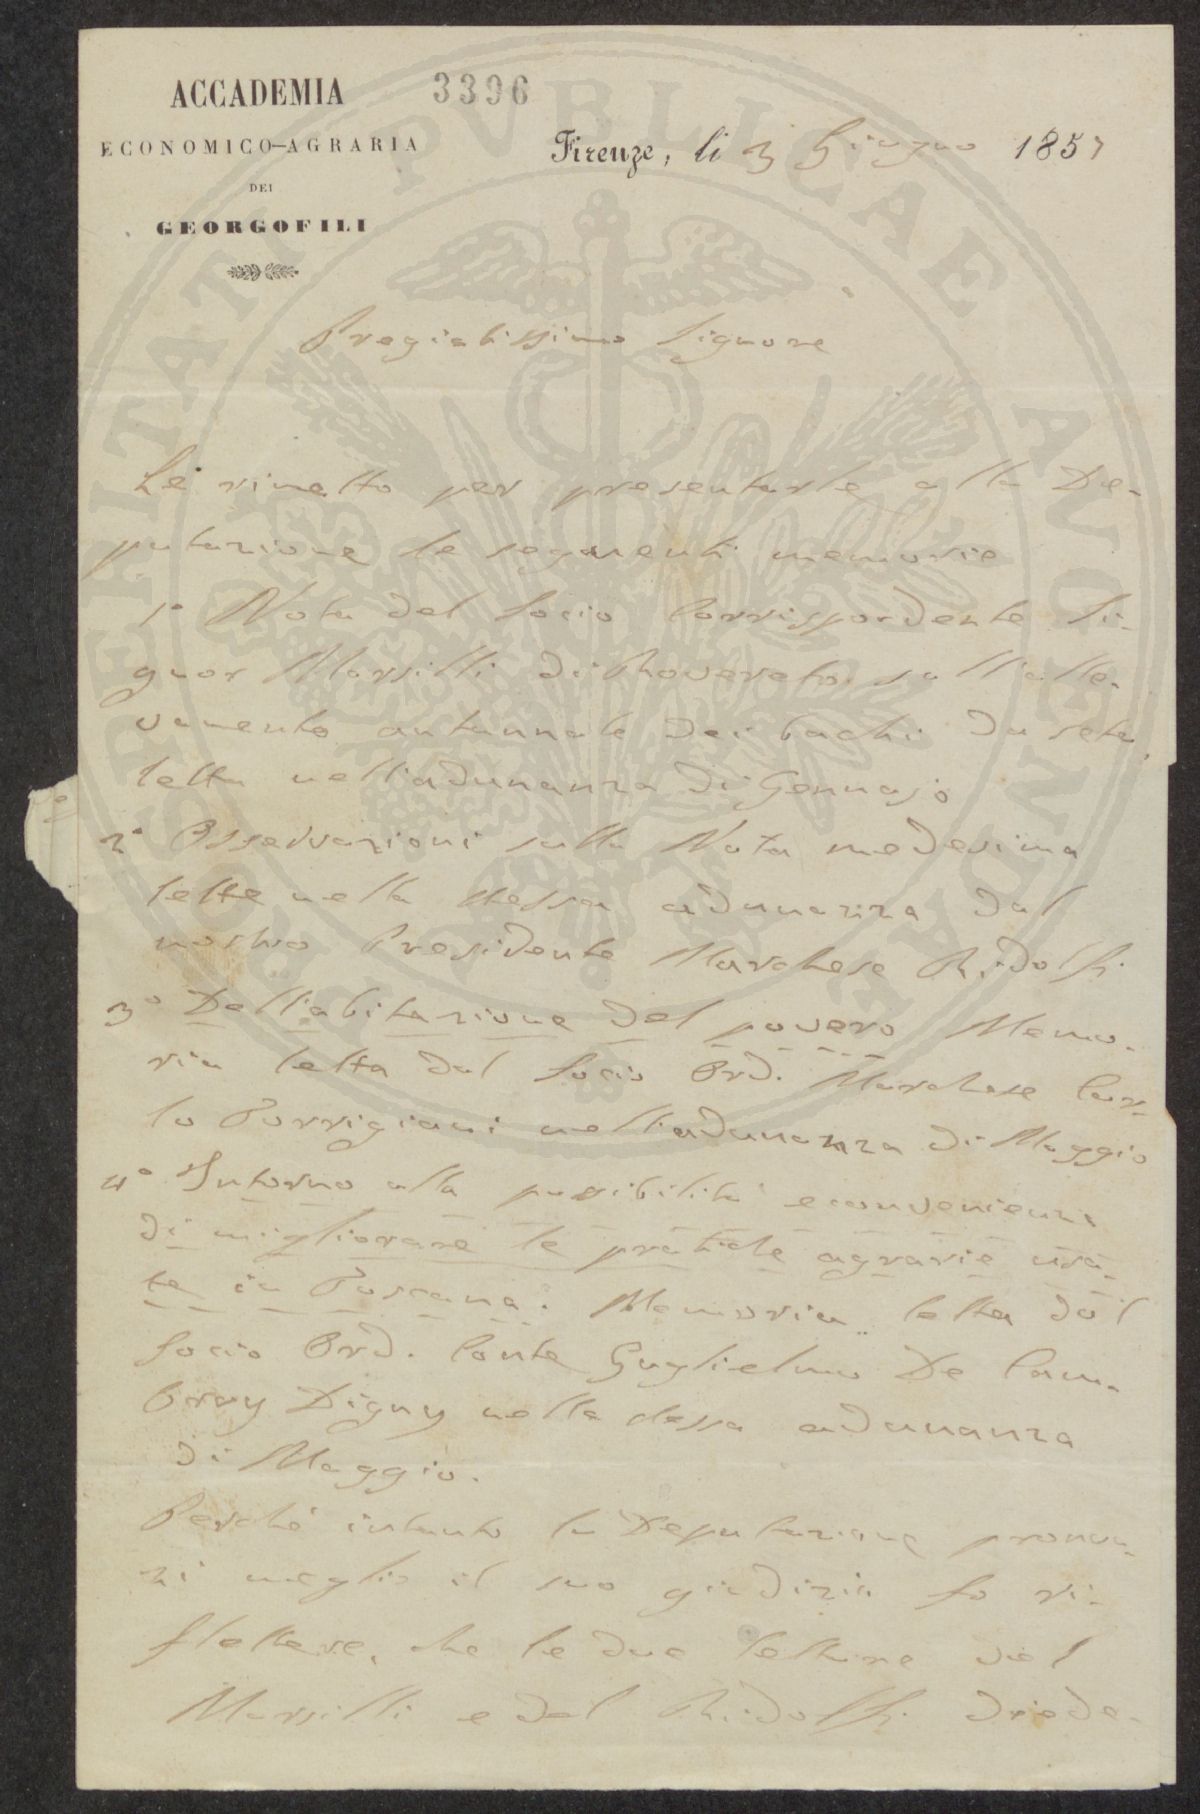 ACCADEMIA
ECONOMICO-AGRARIA
DEI
GEORGOFILI
3396
Firenze, li 3 Giugno 1857
Pregiatissimo Signore
Le rimetto per presentarle alla De-
putazione le seguenti memorie
1° Nota del Socio Corrispondente Si-
gnor Marsilli di Rovereto sull'alle-
vamento autunnale dei bachi da seta,
letta nell'adunanza di Gennajo
2° Osservazioni sulla Nota medesima
lette nella stessa adunanza dal
nostro Presidente Marchese Ridolfi.
3° Dell'abitazione del povero Memo-
ria letta dal Socio Ord. Marchese Car-
lo Torrigiani nell'adunanza di Maggio
4° Intorno alla possibilità e convenienza
di migliorare le pratiche agrarie usa-
te in Toscana. Memoria letta dal
Socio Ord. Conte Guglielmo De Cam-
bray Digny nella stessa adunanza
di Maggio.
Perché intanto la Deputazione pronun-
zi meglio il suo giudizio fo ri-
flettere, che le due letture del
Marsilli e del Ridolfi diede-
PROSPERITATI PVBLICAE AVGENDAE